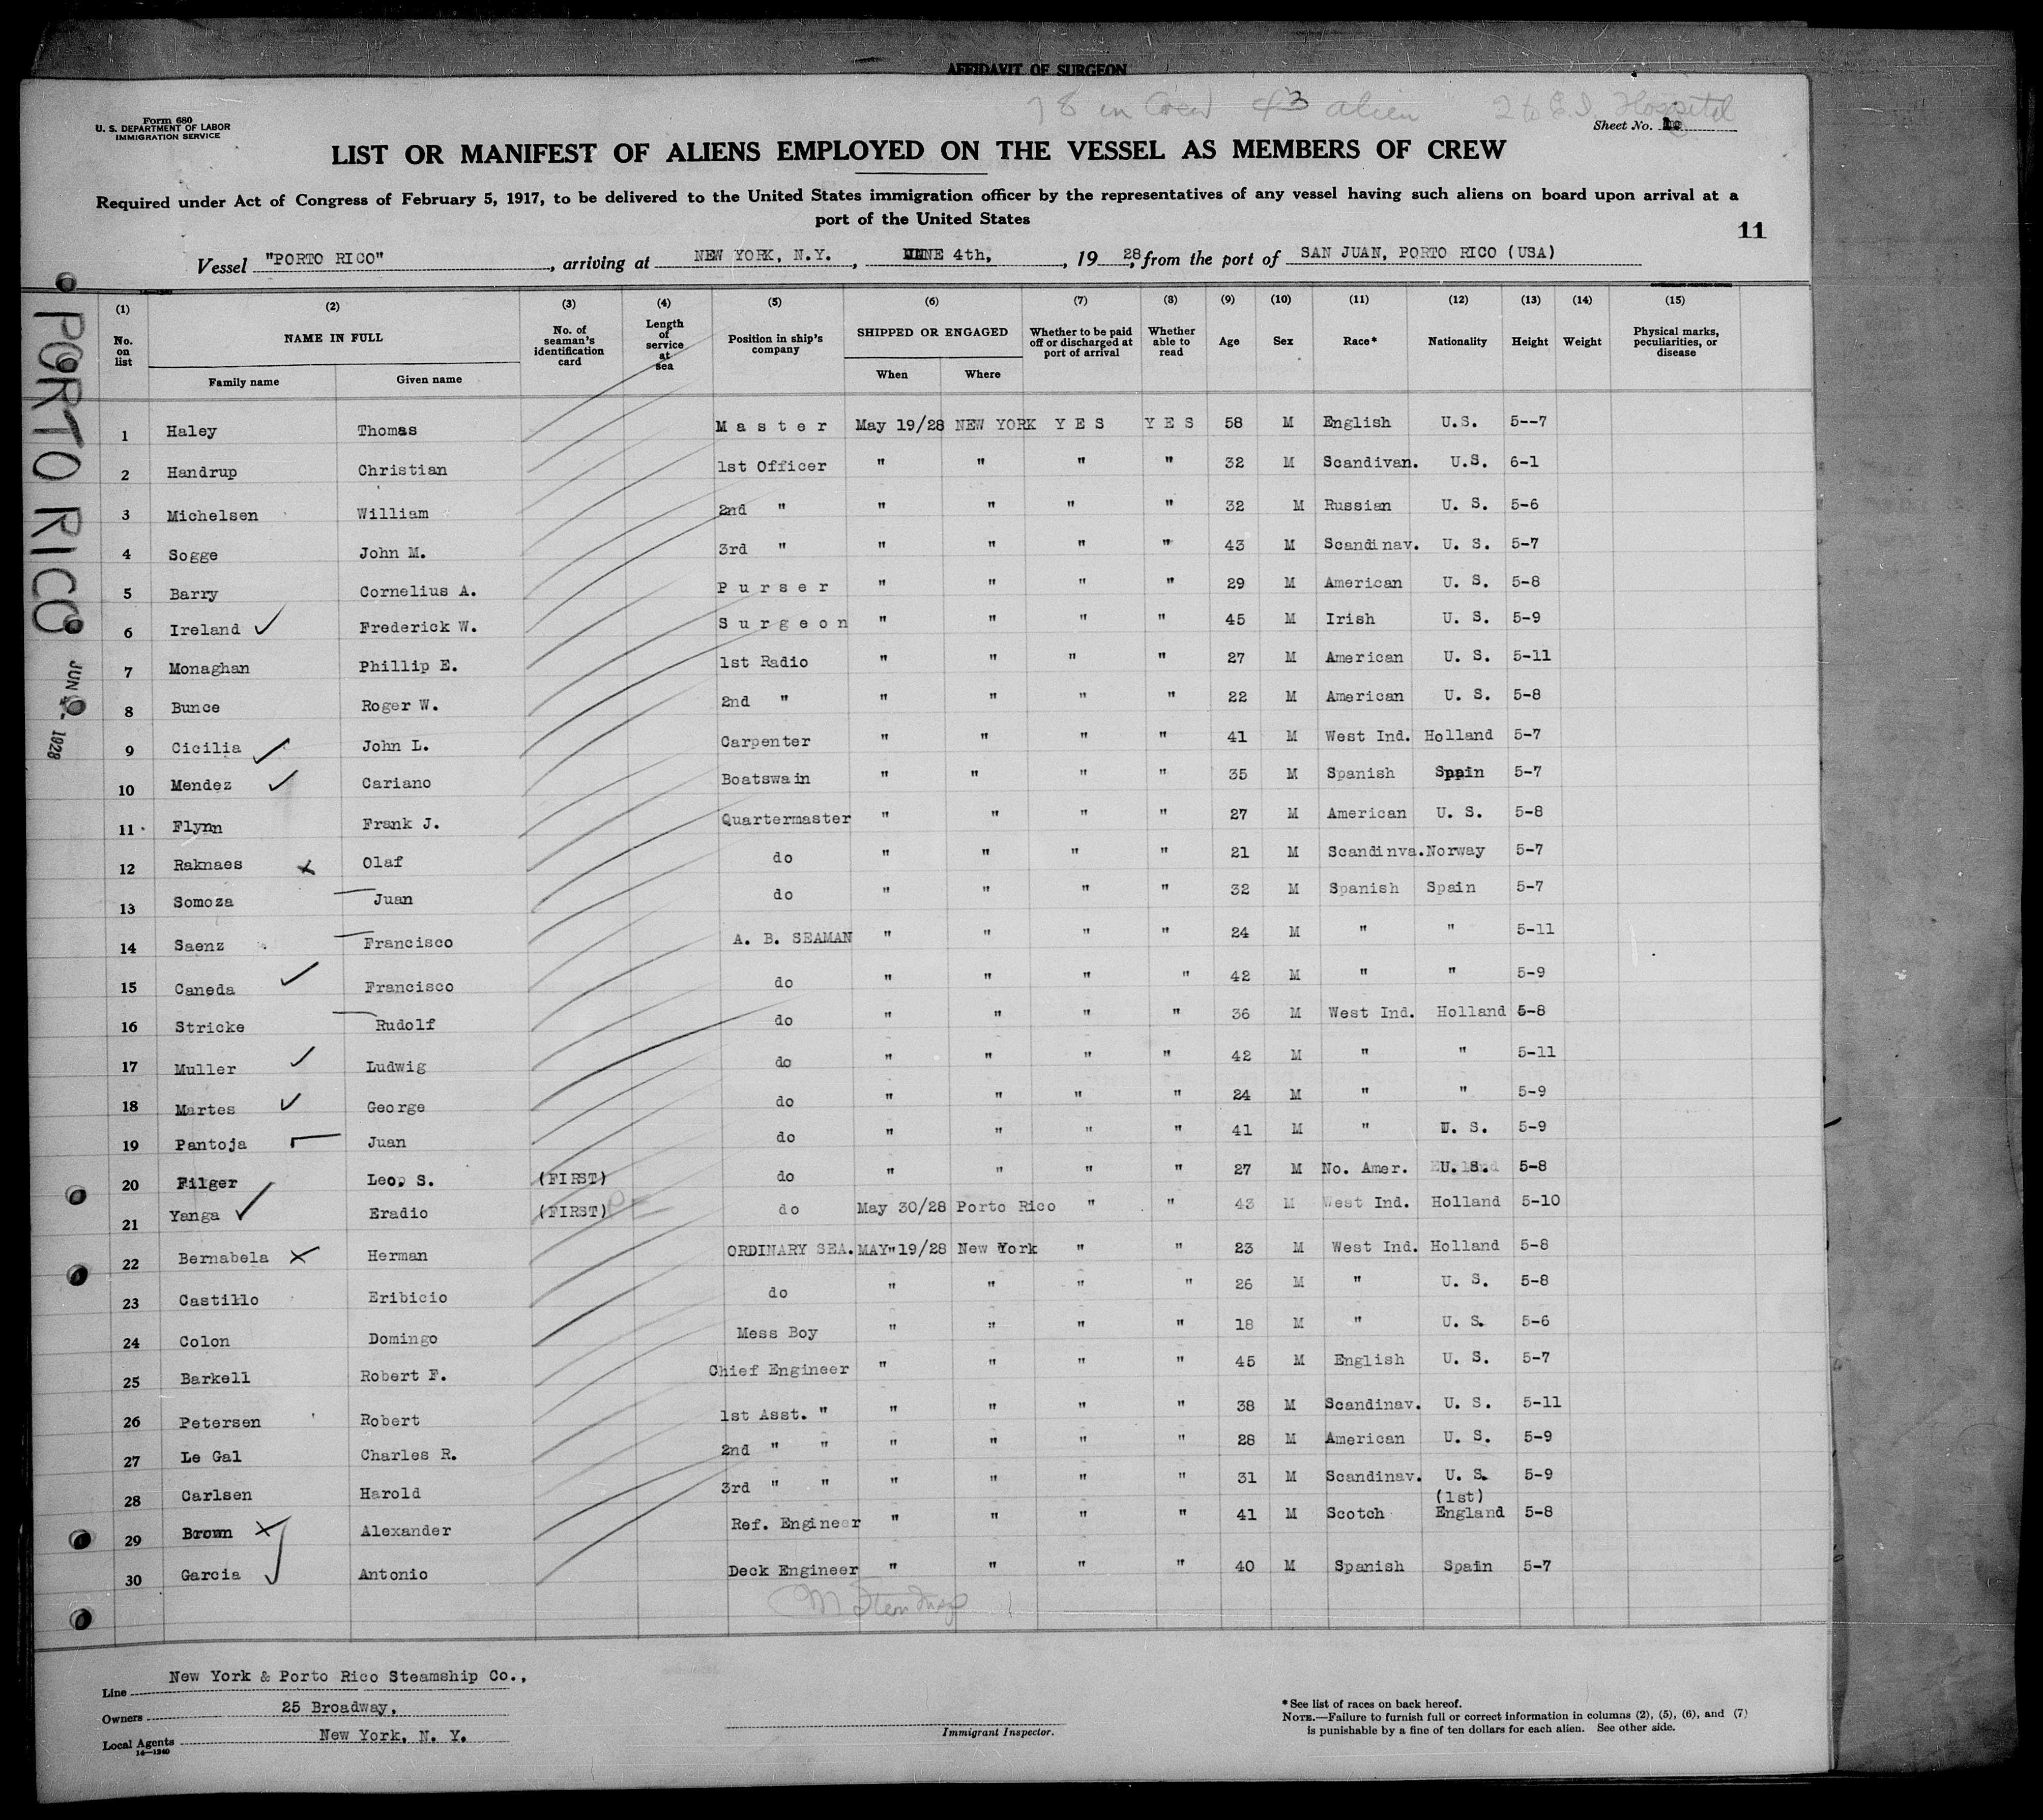 AFFIDAVIT OF SURGEON
78 in Crew 43 alien 2 to E.I. Hospital
Form 680
U. S. DEPARTMENT OF LABOR
IMMIGRATION SERVICE
Sheet No.
LIST OR MANIFEST OF ALIENS EMPLOYED ON THE VESSEL AS MEMBERS OF CREW
Required under Act of Congress of February 5, 1917, to be delivered to the United States immigration officer by the representatives of any vessel having such aliens on board upon arrival at a
port of the United States
11
Vessel "PORTO RICO", arriving at NEW YORK, N.Y., JUNE 4th, , 19 28, from the port of SAN JUAN, PORTO RICO (USA)
PORTO RICO
JUN 1928
(1) (2) (3) (4) (5) (6) (7) (8) (9) (10) (11) (12) (13) (14) (15)
No. on list NAME IN FULL No. of seaman's identification card Length of service at sea Position in ship's company SHIPPED OR ENGAGED Whether to be paid off or discharged at port of arrival Whether able to read Age Sex Race* Nationality Height Weight Physical marks, peculiarities, or disease
Family name Given name When Where
1 Haley Thomas Master May 19/28 NEW YORK YES YES 58 M English U.S. 5--7
2 Handrup Christian 1st Officer " " " " 32 M Scandivan. U.S. 6-1
3 Michelsen William 2nd " " " " " 32 M Russian U. S. 5-6
4 Sogge John M. 3rd " " " " " 43 M Scandinav. U. S. 5-7
5 Barry Cornelius A. Purser " " " " 29 M American U. S. 5-8
6 Ireland Frederick W. Surgeon " " " " 45 M Irish U. S. 5-9
7 Monaghan Phillip E. 1st Radio " " " " 27 M American U. S. 5-11
8 Bunce Roger W. 2nd " " " " " 22 M American U. S. 5-8
9 Cicilia John L. Carpenter " " " " 41 M West Ind. Holland 5-7
10 Mendez Cariano Boatswain " " " " 35 M Spanish Sppin 5-7
11 Flynn Frank J. Quartermaster " " " " 27 M American U. S. 5-8
12 Raknaes Olaf do " " " " 21 M Scandinva. Norway 5-7
13 Somoza Juan do " " " " 32 M Spanish Spain 5-7
14 Saenz Francisco A. B. SEAMAN " " " " 24 M " " 5-11
15 Caneda Francisco do " " " " 42 M " " 5-9
16 Stricke Rudolf do " " " " 36 M West Ind. Holland 5-8
17 Muller Ludwig do " " " " 42 M " " 5-11
18 Martes George do " " " " 24 M " " 5-9
19 Pantoja Juan do " " " " 41 M " U. S. 5-9
20 Filger Leo. S. (FIRST) do " " " " 27 M No. Amer. U. S. 5-8
21 Yanga Eradio (FIRST) do May 30/28 Porto Rico " " 43 M West Ind. Holland 5-10
22 Bernabela Herman ORDINARY SEA. MAY" 19/28 New York " " 23 M West Ind. Holland 5-8
23 Castillo Eribicio do " " " " 26 M " U. S. 5-8
24 Colon Domingo Mess Boy " " " " 18 M " U. S. 5-6
25 Barkell Robert F. Chief Engineer " " " " 45 M English U. S. 5-7
26 Petersen Robert 1st Asst. " " " " " 38 M Scandinav. U. S. 5-11
27 Le Gal Charles R. 2nd " " " " " " 28 M American U. S. 5-9
28 Carlsen Harold 3rd " " " " " " 31 M Scandinav. U. S. 5-9
29 Brown Alexander Ref. Engineer " " " " 41 M Scotch (1st) England 5-8
30 Garcia Antonio Deck Engineer " " " " 40 M Spanish Spain 5-7
Line New York & Porto Rico Steamship Co.,
Owners 25 Broadway,
Local Agents New York, N. Y.
14—1240
Immigrant Inspector.
*See list of races on back hereof.
NOTE.—Failure to furnish full or correct information in columns (2), (5), (6), and (7)
is punishable by a fine of ten dollars for each alien. See other side.